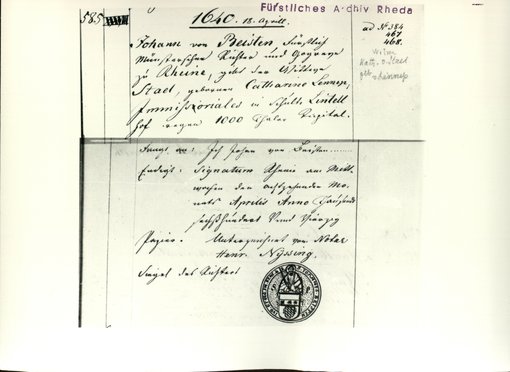 Fürstliches Archiv Rheda
585
1640. 18. Aprill.
ad № 384
467
468.
Johann von Beisten, Fürstlich
Münsterscher Richter und Gogreve
zu Rheine, gibt der Wittwe
Stael, geborner Catharina Lennep,
Immissoriales in Schulte Lintell
Hof wegen 1000 Thaler Kapital.
Fangt an: Ich Johan von Beisten
Endigt: Signatum Rheine am Mitt-
wochen den achtzehnden Mo-
nats Aprilis Anno Thausend
sechßhundert Vnnd Vierzig
Papier. Unterzeichnet von Notar
Henr. Nyssing.
Siegel des Richters